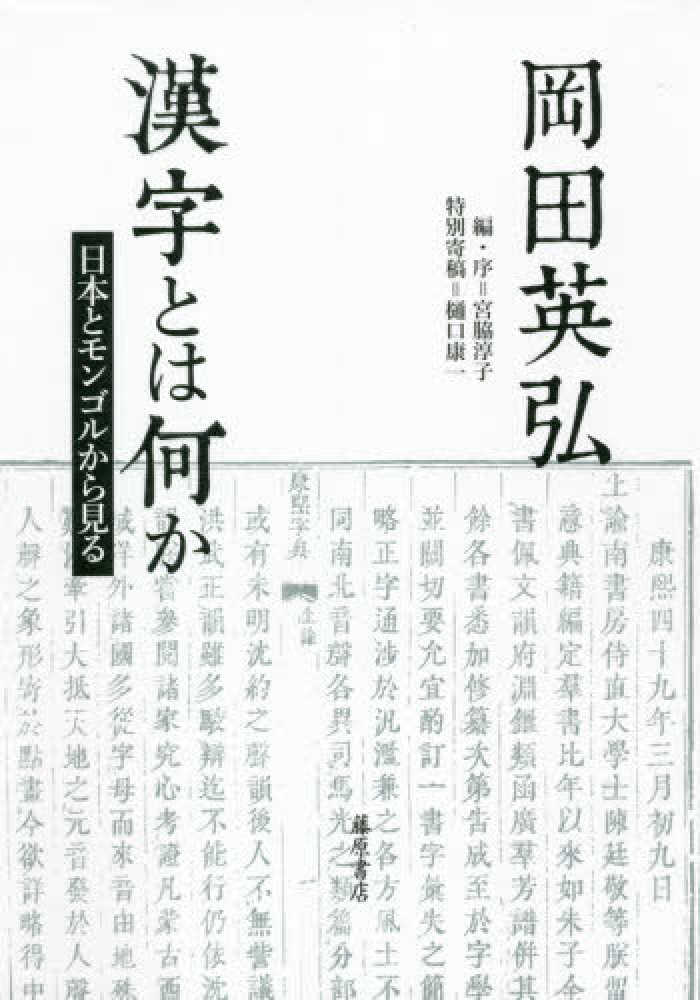 岡田英弘
編・序＝宮脇淳子
特別寄稿＝樋口康一
漢字とは何か
日本とモンゴルから見る
康熙四十九年三月初九日
上諭南書房侍直大學士陳廷敬等朕留
意典籍編定羣書比年以來如朱子全
書佩文韻府淵鑑類函廣羣芳譜併其
餘各書悉加修纂次第告成至於字學
並關切要允宜酌訂一書字彙失之簡
略正字通涉於汎濫兼之各方風土不
同南北音聲各異司馬光之類篇分部
康熙字典
上諭
一
或有未明沈約之聲韻後人不無訾議
洪武正韻雖多駁辯迄不能行仍依沈
嘗參閱諸家究心考證凡蒙古西
域洋外諸國多從字母而來音由地殊
牽引大抵天地之元音發於人聲
人聲之象形寄於點畫今欲詳略得中
藤原書店